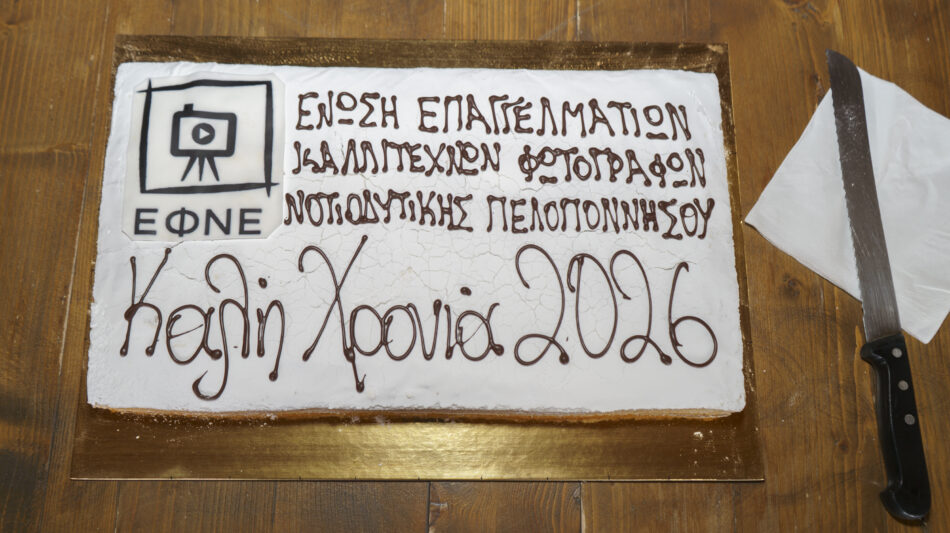 ΕΝΩΣΗ ΕΠΑΓΓΕΛΜΑΤΙΩΝ
ΚΑΛΛΙΤΕΧΝΩΝ ΦΩΤΟΓΡΑΦΩΝ
ΝΟΤΙΟΔΥΤΙΚΗΣ ΠΕΛΟΠΟΝΝΗΣΟΥ
ΕΦΝΕ
Καλή Χρονιά 2026